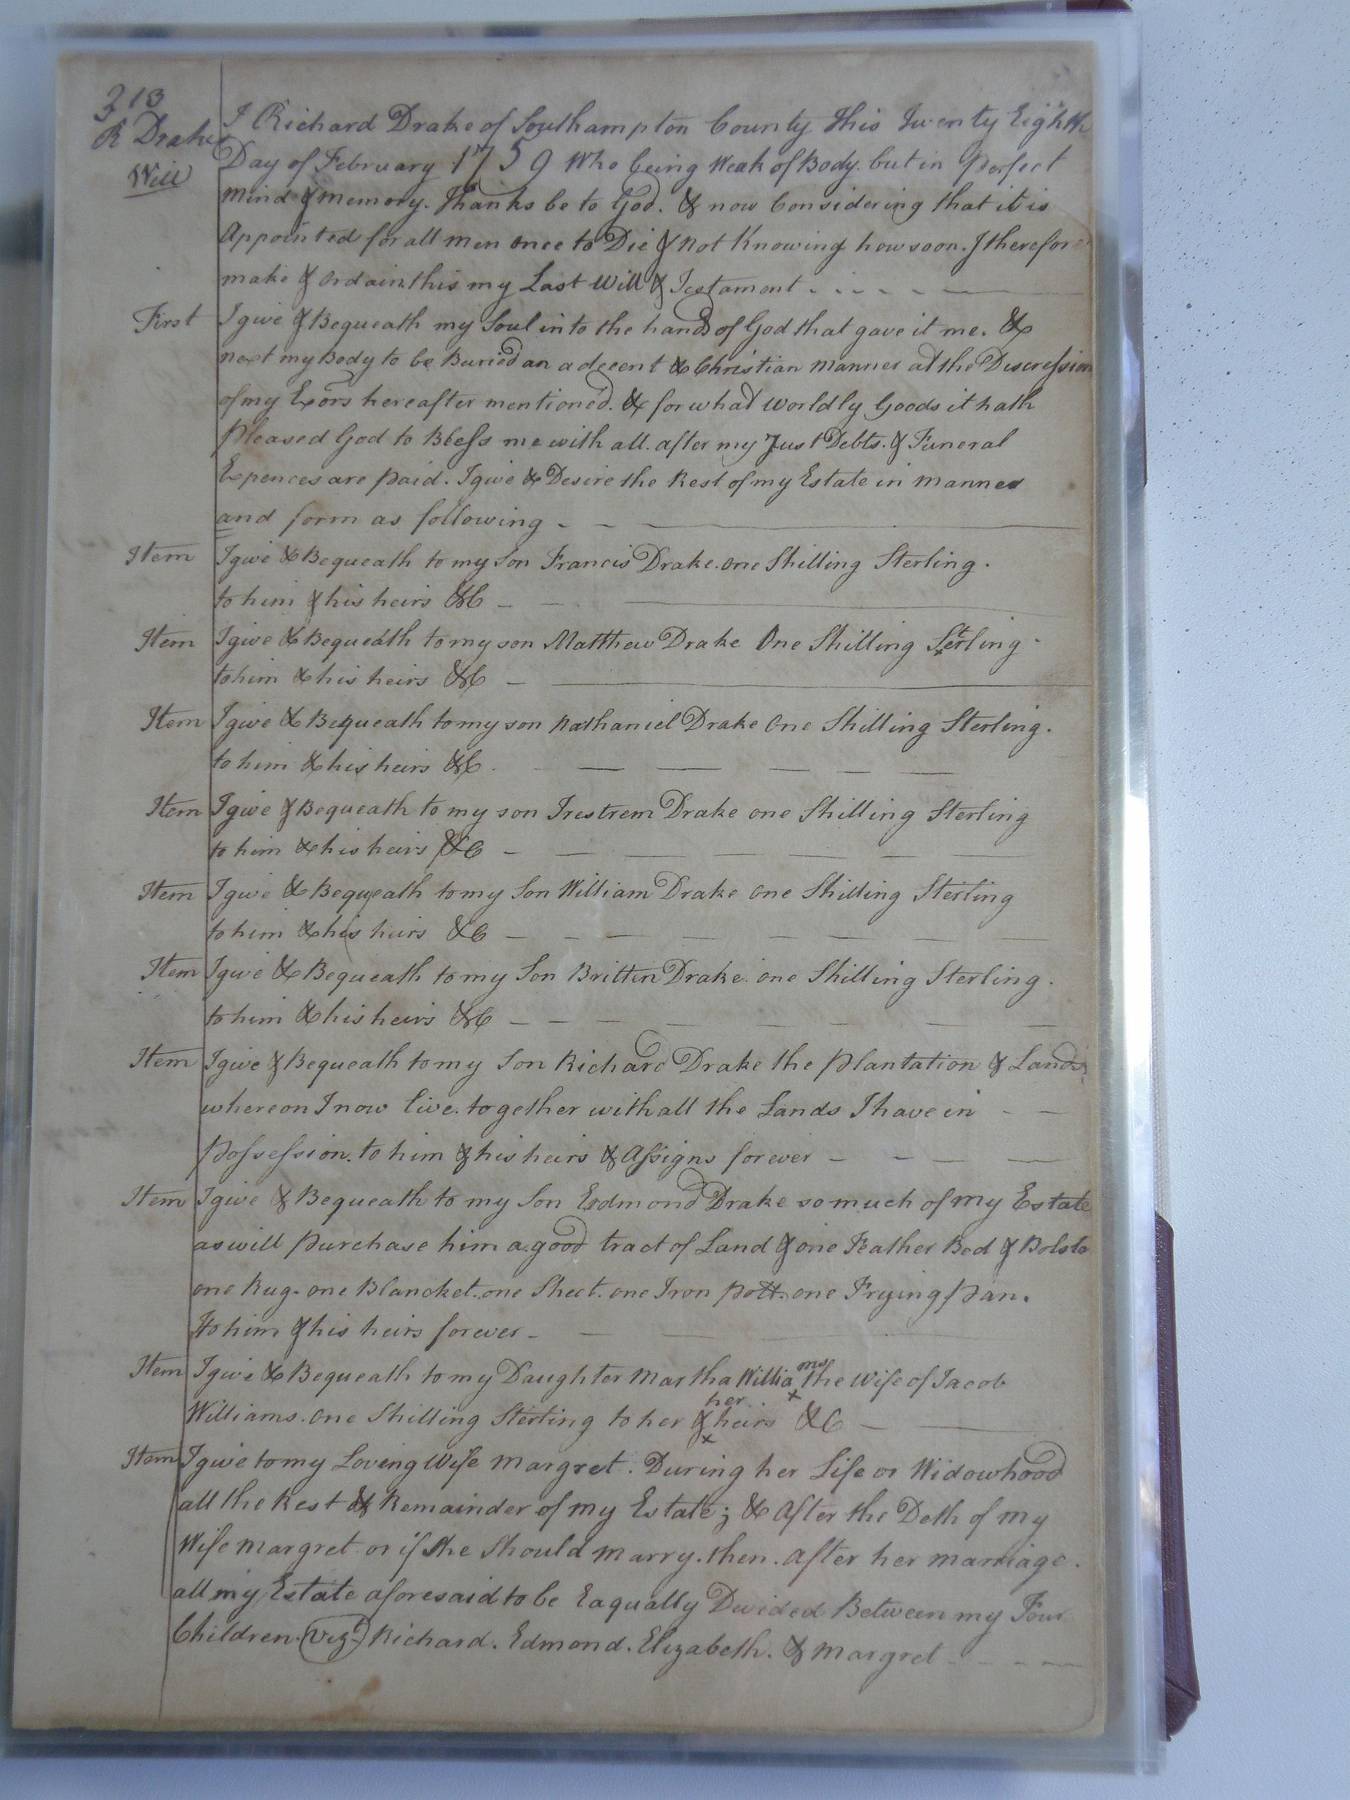 313
R Drake
Will
I Richard Drake of Southampton County this Twenty Eighth
Day of February 1759 Who being Weak of Body. but in Perfect
mind & memory. Thanks be to God. & now Considering that it is
Appointed for all men once to Die & not Knowing how soon. I therefore
make & ordain this my Last Will & Testament
First I give & Bequeath my Soul in to the hands of God that gave it me. &
next my Body to be Buried an a decent & Christian manner at the Discression
of my Exors hereafter mentioned. & for what worldly Goods it hath
Pleased God to Bless me with all. after my Just Debts. & Funeral
Expences are paid. I give & Desire the Rest of my Estate in manner
and form as following
Item I give & Bequeath to my Son Francis Drake. one Shilling Sterling.
to him & his heirs &C
Item I give & Bequeath to my son Matthew Drake One Shilling Sterling
to him & his heirs &C
Item I give & Bequeath to my son Nathaniel Drake One Shilling Sterling.
to him & his heirs &C.
Item I give & Bequeath to my son Trestrem Drake one Shilling Sterling
to him & his heirs &C
Item I give & Bequeath to my Son William Drake one Shilling Sterling
to him & his heirs &C
Item I give & Bequeath to my Son Britten Drake. one Shilling Sterling.
to him & his heirs &C
Item I give & Bequeath to my Son Richard Drake the Plantation & Lands
whereon I now live. together with all the Lands I have in
Possession. to him & his heirs & Assigns forever
Item I give & Bequeath to my Son Edmond Drake so much of my Estate
as will Purchase him a good tract of Land & one Feather Bed & Bolste
one Rug. one Blancket. one Sheet. one Iron Pott. one Frying Pan.
to him & his heirs forever
Item I give & Bequeath to my Daughter Martha Williams the Wife of Jacob
Williams. one Shilling Sterling to her & her heirs &C
Item I give to my Loving Wife Margret. During her Life or Widowhood
all the Rest & Remainder of my Estate; & After the Deth of my
Wife Margret or if She Should Marry. then. After her marriage.
all my Estate aforesaid to be Eaqually Devided Between my Four
Children. Vizt. Richard. Edmond. Elizabeth. & Margret